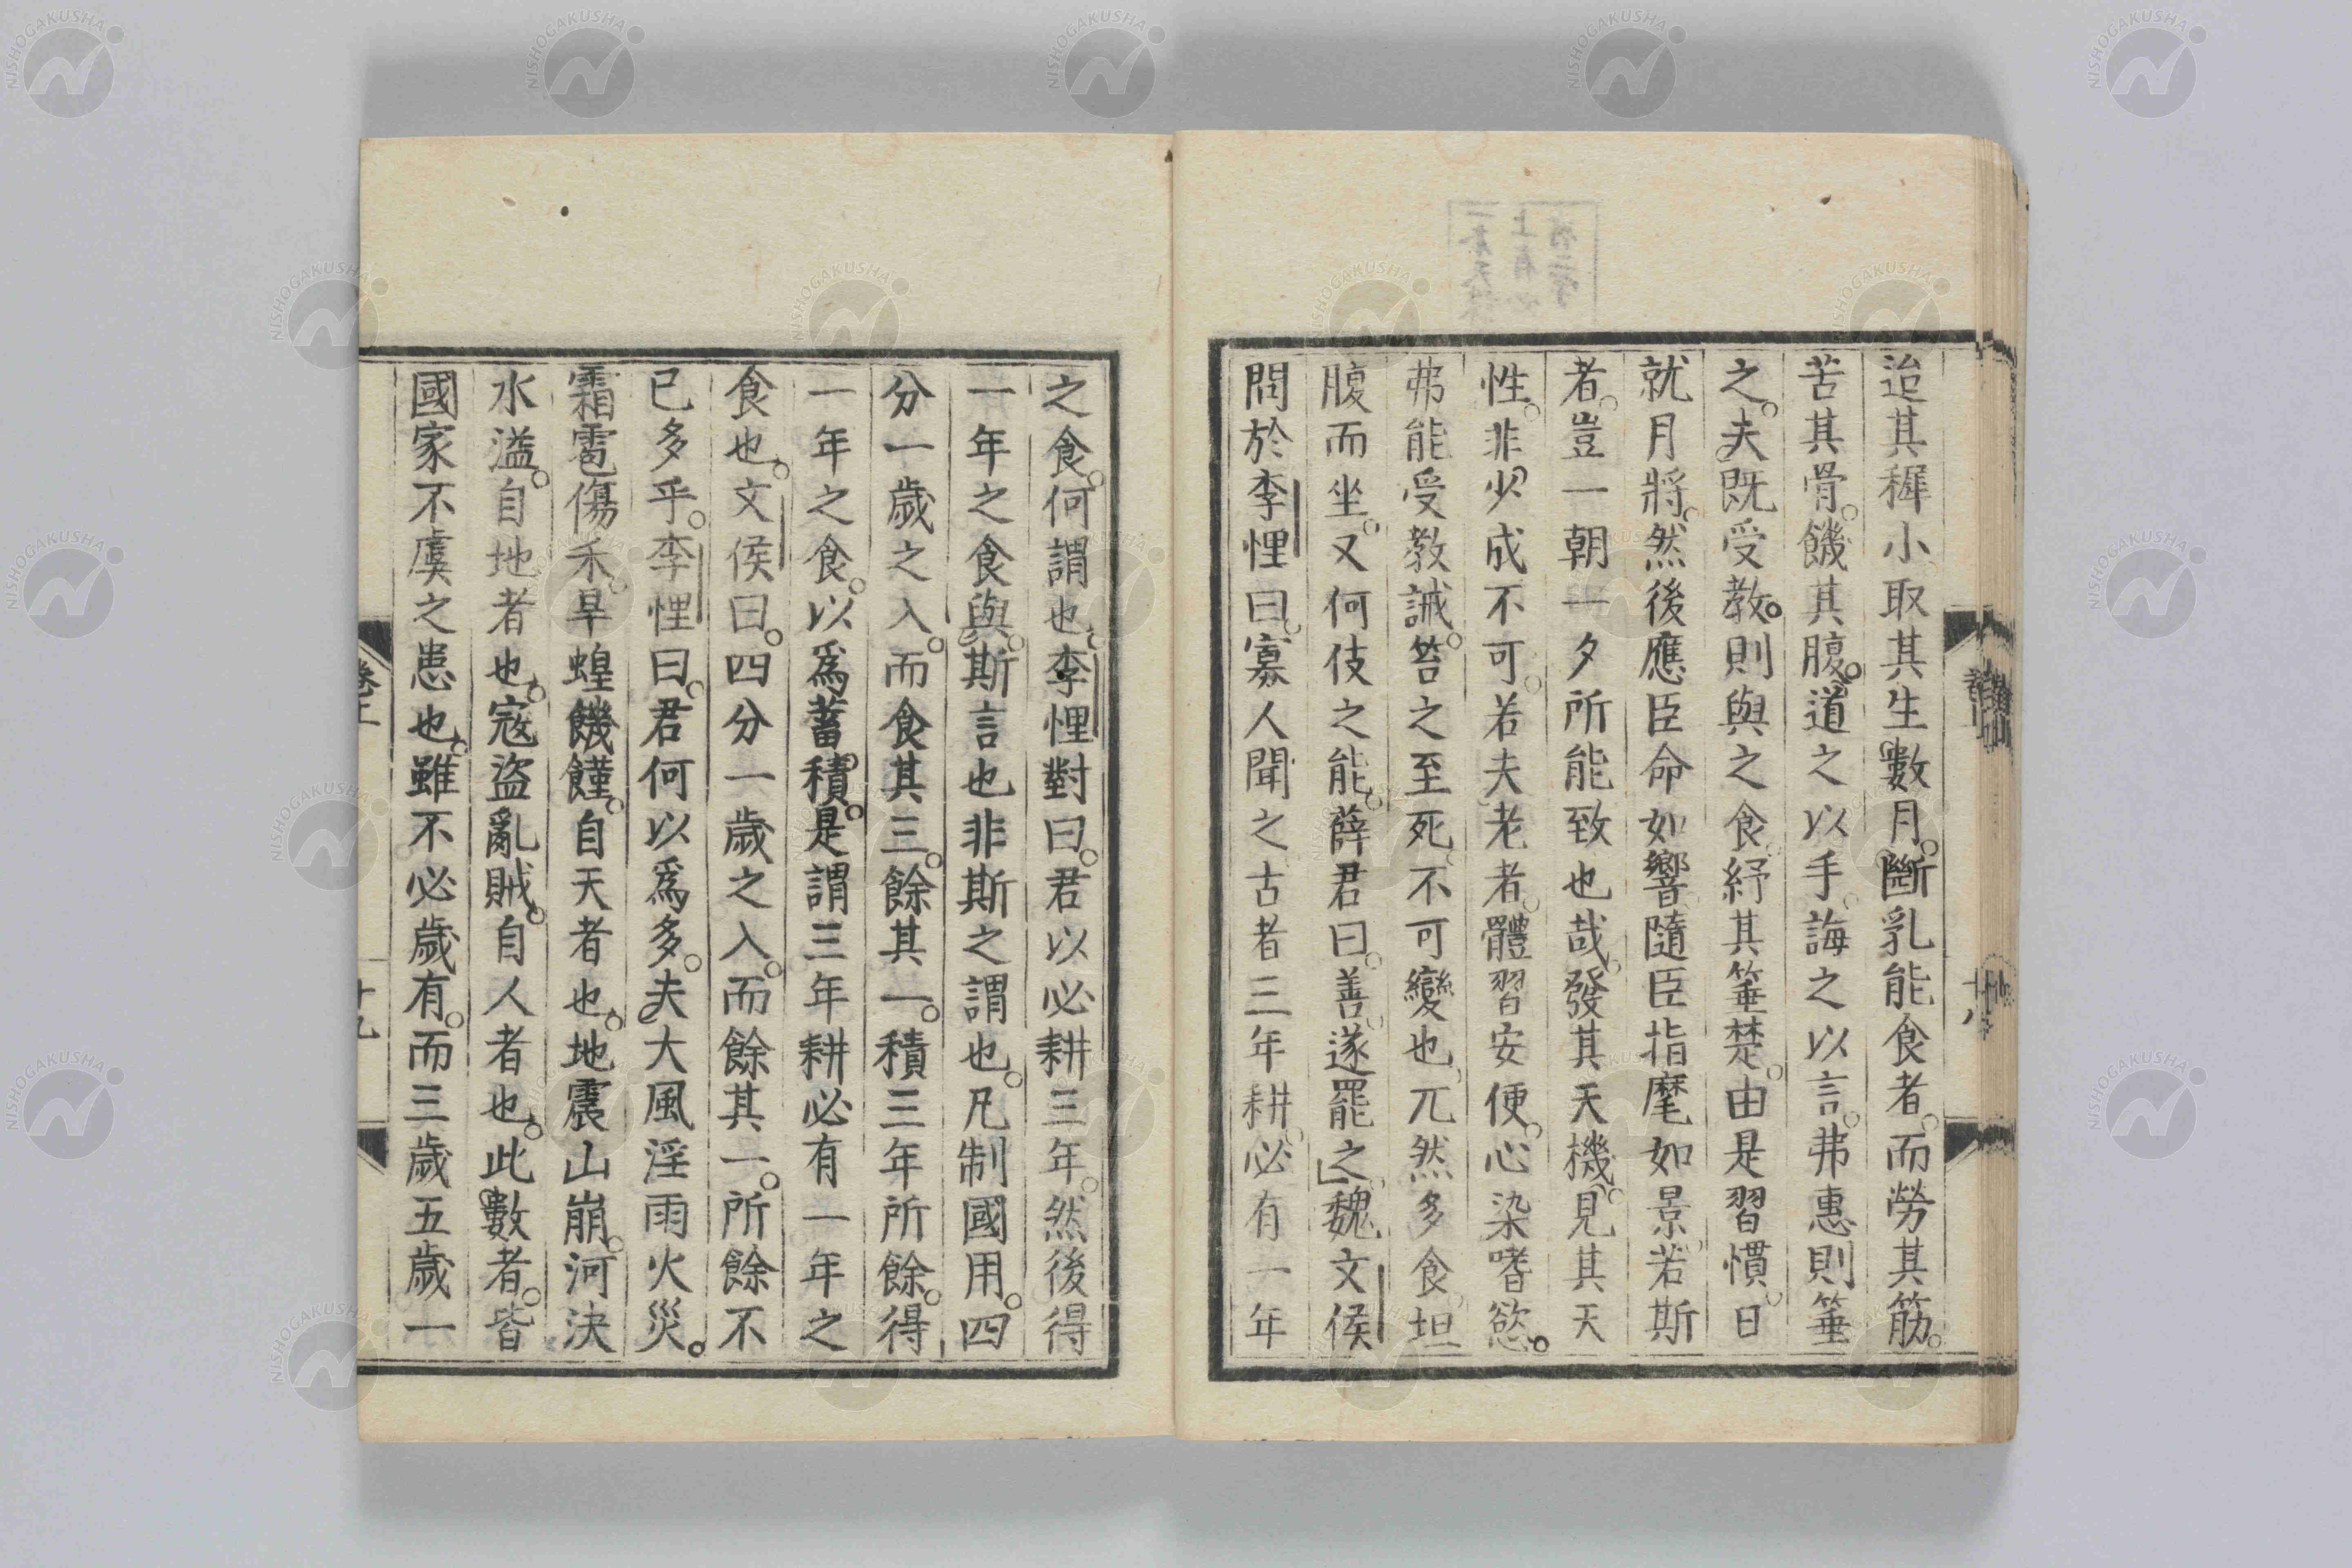 迨其穉小取其生數月。斷乳能食者。而勞其筋。
苦其骨。饑其腹。道之以手。誨之以言。弗惠則箠
之。夫既受教。則與之食。紓其箠楚。由是習慣。日
就月將。然後應臣命如響。隨臣指麾如景。若斯
者。豈一朝一夕所能致也哉。發其天機。見其天
性。非少成不可。若夫老者。體習安便。心染嗜慾。
弗能受教誡。笞之至死。不可變也。兀然多食。坦
腹而坐。又何伎之能。薛君曰。善。遂罷之」魏文侯
問於李悝曰。寡人聞之古者三年耕。必有一年
之食。何謂也。李悝對曰。君以必耕三年。然後得
一年之食與。斯言也非斯之謂也。凡制國用。四
分一歲之入。而食其三。餘其一。積三年所餘。得
一年之食。以爲蓄積。是謂三年耕必有一年之
食也。文侯曰。四分一歲之入。而餘其一。所餘不
已多乎。李悝曰。君何以爲多。夫大風淫雨火災。
霜雹傷禾。旱蝗饑饉。自天者也。地震山崩。河決
水溢。自地者也。寇盜亂賊。自人者也。此數者。皆
國家不虞之患也。雖不必歲有。而三歲五歲一
卷上
十九
NISHOGAKUSHA